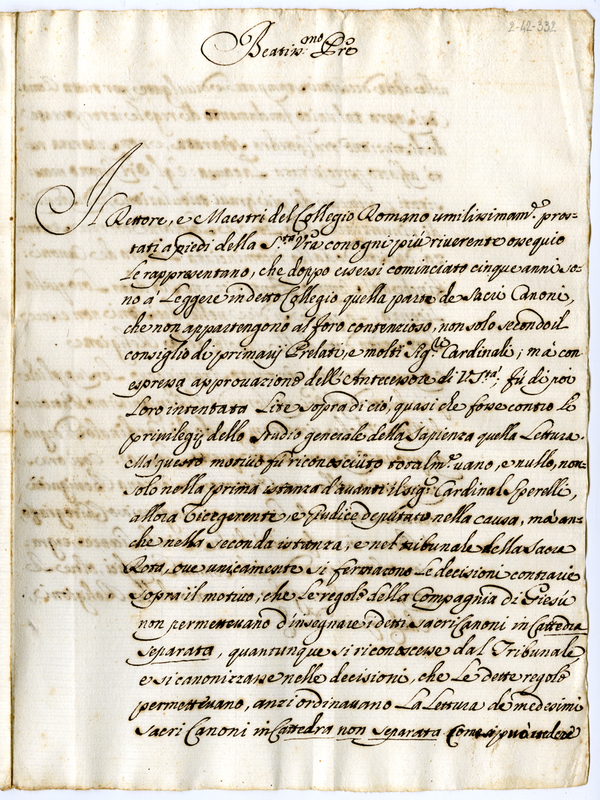 2-42-332
Beatis.mo Pre
Il Rettore, e Maestri del Collegio Romano umilissimam.e pros-
tati a piedi della S.tà Vra con ogni più riverente ossequio
le rappresentano, che doppo essersi cominciato cinque anni so-
no a Leggere in detto Collegio quella parte de Sacri Canoni,
che non appartengono al foro contenzioso, non solo secondo il
consiglio di primarij Prelati, e molti Sig.ri Cardinali; mà con
espressa approvazione dell'Antecessore di V. S.tà; fù di poi
loro intentata Lite sopra di ciò, quasi che fosse contro le
privilegij dello Studio generale della Sapienza quella Lettura.
Mà questo motivo fù riconosciuto totalm.e vano, e nullo, non
solo nella prima istanza d'avanti il sig.r Cardinal Sperelli,
allora Vicegerente, e Giudice deputato nella causa, mà an-
che nella seconda istanza, e nel tribunale della Sacra
Rota, ove unicamente si fermarono le decisioni contrarie
sopra il motivo, che le regole della Compagnia di Giesù
non permettevano d'insegnare i detti sacri Canoni in Cattedra
separata, quantunque si riconoscesse dal Tribunale
e si canonizzasse nelle decisioni, che Le dette regole
permettevano, anzi ordinavano La Lettura de medesimi
sacri Canoni in Cattedra non separata Come si può vedere